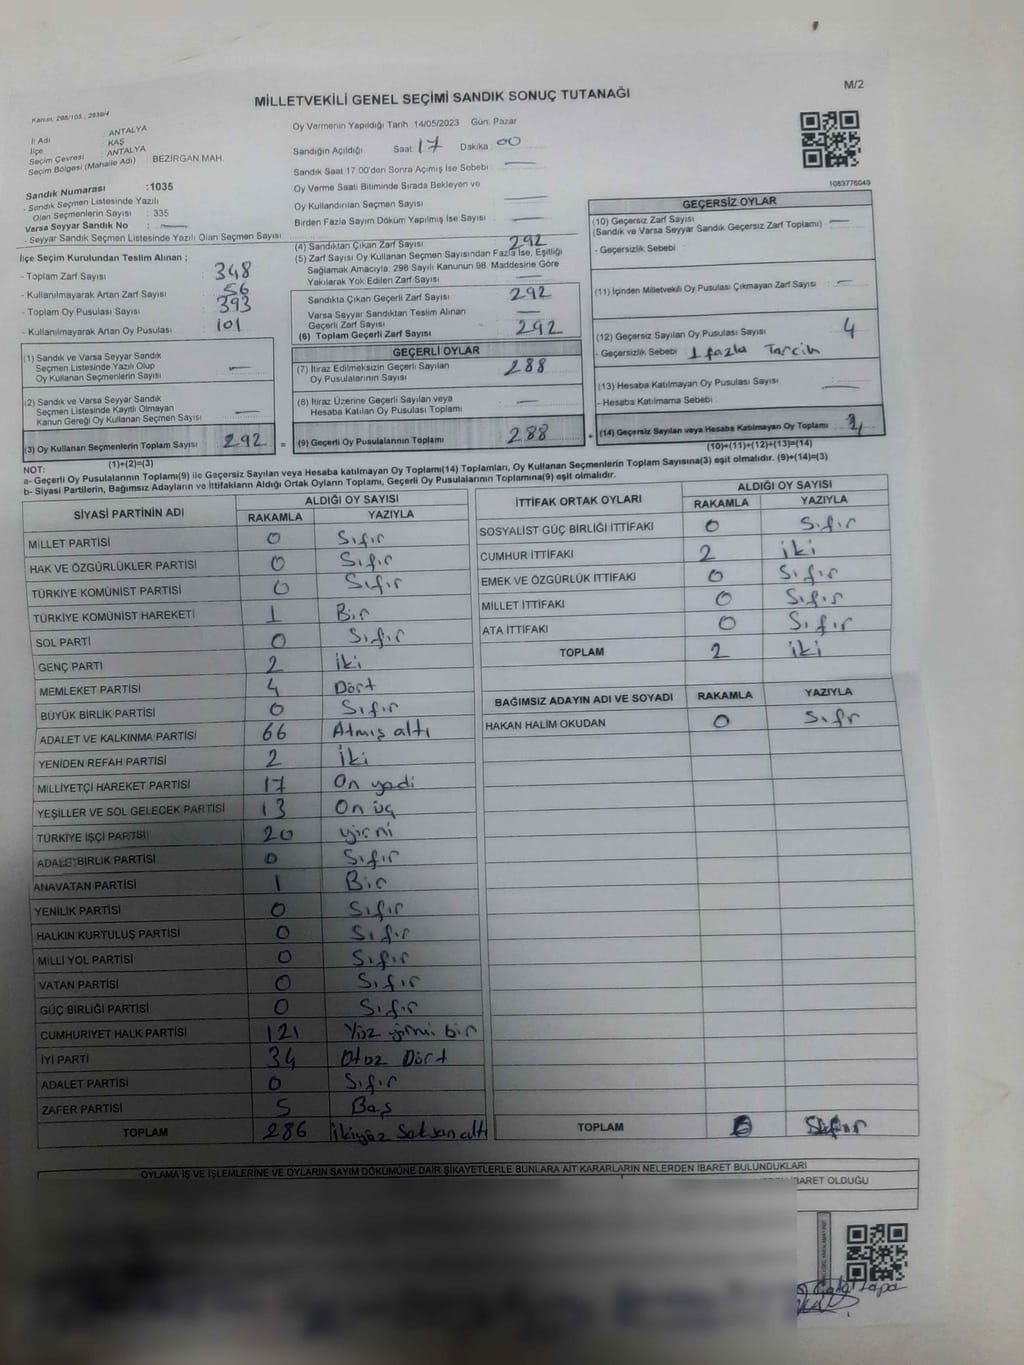 M/2
MİLLETVEKİLİ GENEL SEÇİMİ SANDIK SONUÇ TUTANAĞI
İl Adı : ANTALYA
İlçe : KAŞ
Seçim Çevresi : ANTALYA
Seçim Bölgesi (Mahalle Adı) BEZİRGAN MAH.
Sandık Numarası :1035
- Sandık Seçmen Listesinde Yazılı
Olan Seçmenlerin Sayısı : 335
Varsa Seyyar Sandık No : —
- Seyyar Sandık Seçmen Listesinde Yazılı Olan Seçmen Sayısı :
Oy Vermenin Yapıldığı Tarih :14/05/2023 Gün: Pazar
Sandığın Açıldığı Saat 17 Dakika 00
Sandık Saat 17:00'den Sonra Açımış İse Sebebi : —
Oy Verme Saati Bitiminde Sırada Bekleyen ve
Oy Kullandırılan Seçmen Sayısı : —
Birden Fazla Sayım Döküm Yapılmış İse Sayısı : —
1083776049
İlçe Seçim Kurulundan Teslim Alınan ;
- Toplam Zarf Sayısı : 348
- Kullanılmayarak Artan Zarf Sayısı : 56
- Toplam Oy Pusulası Sayısı : 393
- Kullanılmayarak Artan Oy Pusulası : 101
(1) Sandık ve Varsa Seyyar Sandık
Seçmen Listesinde Yazılı Olup
Oy Kullanan Seçmenlerin Sayısı : —
(2) Sandık ve Varsa Seyyar Sandık
Seçmen Listesinde Kayıtlı Olmayan
Kanun Gereği Oy Kullanan Seçmen Sayısı : —
(3) Oy Kullanan Seçmenlerin Toplam Sayısı : 292 =
(1)+(2)=(3)
(4) Sandıktan Çıkan Zarf Sayısı : 292
(5) Zarf Sayısı Oy Kullanan Seçmen Sayısından Fazla İse, Eşitliği
Sağlamak Amacıyla, 298 Sayılı Kanunun 98. Maddesine Göre
Yakılarak Yok Edilen Zarf Sayısı : —
Sandıkta Çıkan Geçerli Zarf Sayısı : 292
Varsa Seyyar Sandıktan Teslim Alınan
Geçerli Zarf Sayısı : —
(6) Toplam Geçerli Zarf Sayısı : 292
GEÇERLİ OYLAR
(7) İtiraz Edilmeksizin Geçerli Sayılan
Oy Pusulalarının Sayısı : 288
(8) İtiraz Üzerine Geçerli Sayılan veya
Hesaba Katılan Oy Pusulası Toplamı :
(9) Geçerli Oy Pusulalarının Toplamı : 288 +
GEÇERSİZ OYLAR
(10) Geçersiz Zarf Sayısı : —
(Sandık ve Varsa Seyyar Sandık Geçersiz Zarf Toplamı)
- Geçersizlik Sebebi :
(11) İçinden Milletvekili Oy Pusulası Çıkmayan Zarf Sayısı : —
(12) Geçersiz Sayılan Oy Pusulası Sayısı : 4
- Geçersizlik Sebebi : 1 fazla Tercih
(13) Hesaba Katılmayan Oy Pusulası Sayısı : —
- Hesaba Katılmama Sebebi :
(14) Geçersiz Sayılan veya Hesaba Katılmayan Oy Toplamı :
(10)+(11)+(12)+(13)=(14)
NOT:
a- Geçerli Oy Pusulalarının Toplamı(9) ile Geçersiz Sayılan veya Hesaba katılmayan Oy Toplamı(14) Toplamları, Oy Kullanan Seçmenlerin Toplam Sayısına(3) eşit olmalıdır. (9)+(14)=(3)
b- Siyasi Partilerin, Bağımsız Adayların ve İttifakların Aldığı Ortak Oyların Toplamı, Geçerli Oy Pusulalarının Toplamına(9) eşit olmalıdır.
SİYASİ PARTİNİN ADI ALDIĞI OY SAYISI
RAKAMLA YAZIYLA
MİLLET PARTİSİ 0 Sıfır
HAK VE ÖZGÜRLÜKLER PARTİSİ 0 Sıfır
TÜRKİYE KOMÜNİST PARTİSİ 0 Sıfır
TÜRKİYE KOMÜNİST HAREKETİ 1 Bir
SOL PARTİ 0 Sıfır
GENÇ PARTİ 2 iki
MEMLEKET PARTİSİ 4 Dört
BÜYÜK BİRLİK PARTİSİ 0 Sıfır
ADALET VE KALKINMA PARTİSİ 66 Atmış altı
YENİDEN REFAH PARTİSİ 2 İki
MİLLİYETÇİ HAREKET PARTİSİ 17 On yedi
YEŞİLLER VE SOL GELECEK PARTİSİ 13 On üç
TÜRKİYE İŞÇİ PARTİSİ 20 yirmi
ADALET BİRLİK PARTİSİ 0 Sıfır
ANAVATAN PARTİSİ 1 Bir
YENİLİK PARTİSİ 0 Sıfır
HALKIN KURTULUŞ PARTİSİ 0 Sıfır
MİLLİ YOL PARTİSİ 0 Sıfır
VATAN PARTİSİ 0 Sıfır
GÜÇ BİRLİĞİ PARTİSİ 0 Sıfır
CUMHURİYET HALK PARTİSİ 121 Yüz yirmi bir
İYİ PARTİ 34 Otuz Dört
ADALET PARTİSİ 0 Sıfır
ZAFER PARTİSİ 5 Beş
TOPLAM 286 İkiyüz Seksen altı
İTTİFAK ORTAK OYLARI ALDIĞI OY SAYISI
RAKAMLA YAZIYLA
SOSYALİST GÜÇ BİRLİĞİ İTTİFAKI 0 Sıfır
CUMHUR İTTİFAKI 2 iki
EMEK VE ÖZGÜRLÜK İTTİFAKI 0 Sıfır
MİLLET İTTİFAKI 0 Sıfır
ATA İTTİFAKI 0 Sıfır
TOPLAM 2 iki
BAĞIMSIZ ADAYIN ADI VE SOYADI RAKAMLA YAZIYLA
HAKAN HALİM OKUDAN 0 Sıfır
TOPLAM 0 Sıfır
OYLAMA İŞ VE İŞLEMLERİNE VE OYLARIN SAYIM DÖKÜMÜNE DAİR ŞİKAYETLERLE BUNLARA AİT KARARLARIN NELERDEN İBARET BULUNDUKLARI
İBARET OLDUĞU